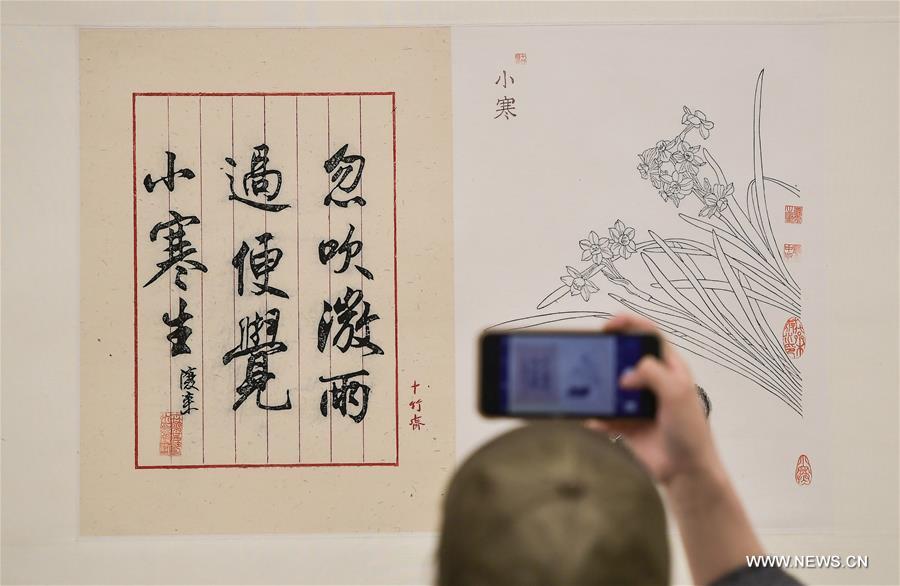 忽吹微雨
過便覺
小寒生
十竹齋
小寒
WWW.NEWS.CN